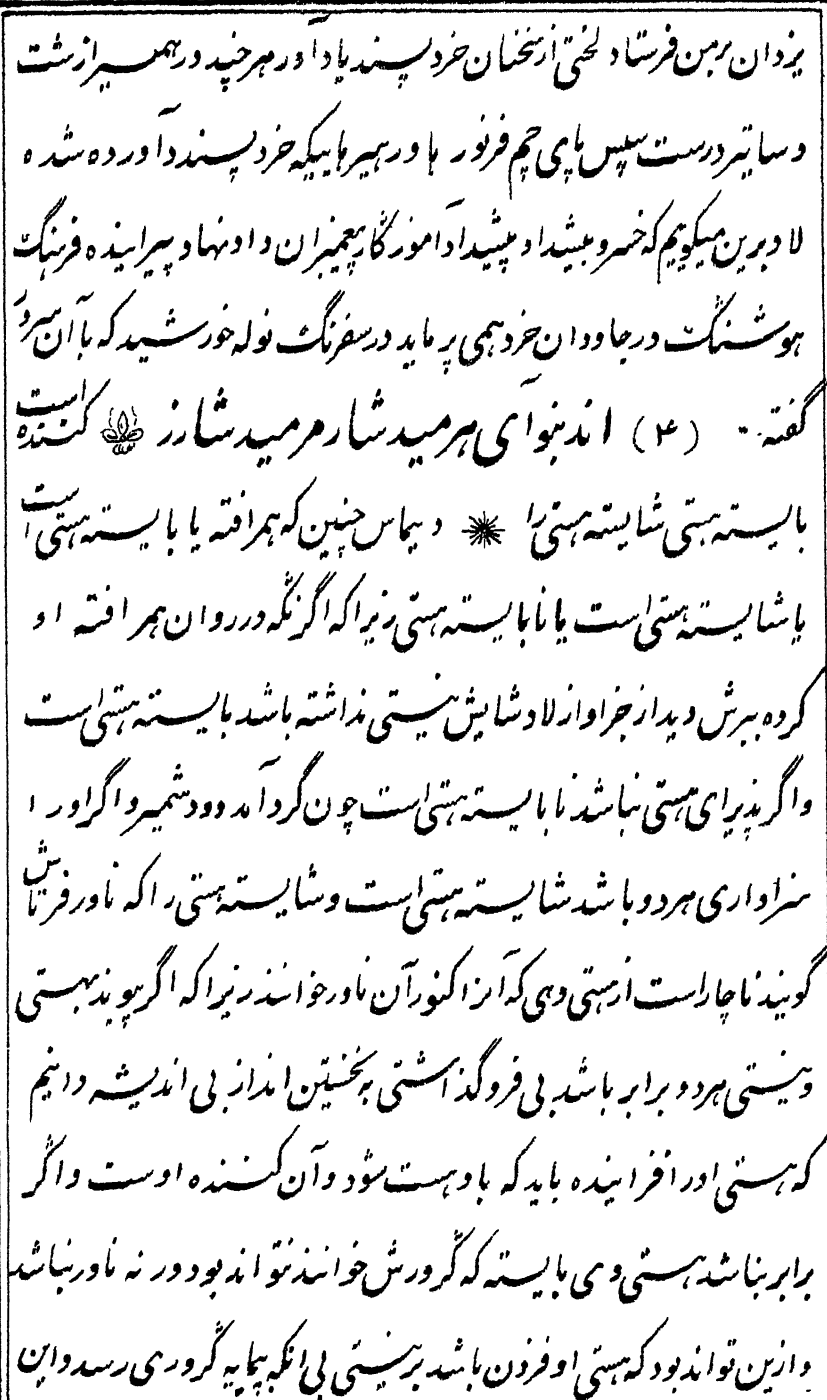 یزدان برمن فرستاد لختی از سخنان خرد پسند یاد آور هر چند در همیراز شت
دساتیر درست سپس پای چم فرنور ها و رهبرهاییکه خرد پسندد آورده شده
لاد برین میگویم که خسرو بیشداد پیشداد آموزگار پیغمبران داد نهاد پیراینده فرهنگ
هوشنگ در جاودان خرد همی پرماید در سفرنگ نوله خورشید که با آن سرور
گفته (۴) اندنبوآی هرمید شار مرمید شارز کننده است
بایسته هستی شایسته هستی را دیماس چنین که همرافته یا بایسته هستی است
یا شایسته هستی است یا نابایسته هستی زیرا که اگر نگه در روان همرافته او
کرده ببرش دید از جز او از لاد شایش نیستی نداشته باشد بایسته هستی است
واگر پذیرای هستی نباشد نابایسته هستی است چون گرد آمد دو دشمیر واگر اورا
سزاواری هر دو باشد شایسته هستی است وشایسته هستی را که ناور فرتاش
گویند ناچار است از هستی دهی که آنرا کنور آن ناور خوانند زیرا که اگر پیوند بهستی
ونیستی هر دو برابر باشد بی فروگذاشتی به نخستین انداز بی اندیشه دانیم
که هستی اورا فزاینده باید که باو هست شود و آن کننده اوست واگر
برابر نباشد هستی وی بایسته که گرورش خوانند نتواند بود ورنه ناور نباشد
وازین تواند بود که هستی او فزون باشد بر نیستی بی انکه بپایه گروری رسد واین